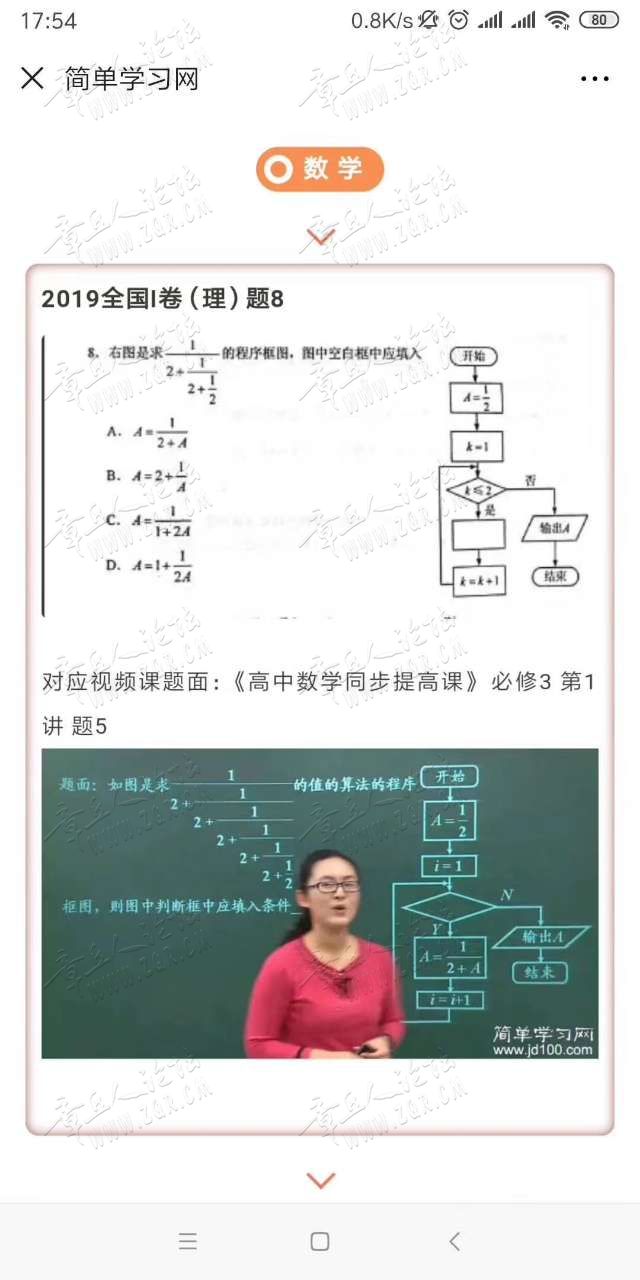 17:54 0.8K/s 80
简单学习网
数学
2019全国I卷（理）题8
8. 右图是求 1/(2+1/(2+1/2)) 的程序框图，图中空白框中应填入
A. A=1/(2+A)
B. A=2+1/A
C. A=1/(1+2A)
D. A=1+1/(2A)
开始
A=1/2
k=1
k≤2
否
是
输出A
k=k+1
结束
对应视频课题面:《高中数学同步提高课》必修3 第1
讲 题5
题面: 如图是求 1/(2+1/(2+1/(2+1/(2+1/(2+1/2))))) 的值的算法的程序
框图，则图中判断框中应填入条件_
开始
A=1/2
i=1
N
Y
A=1/(2+A)
输出A
i=i+1
结束
简单学习网
www.jd100.com
章丘人论坛
WWW.ZQR.CN